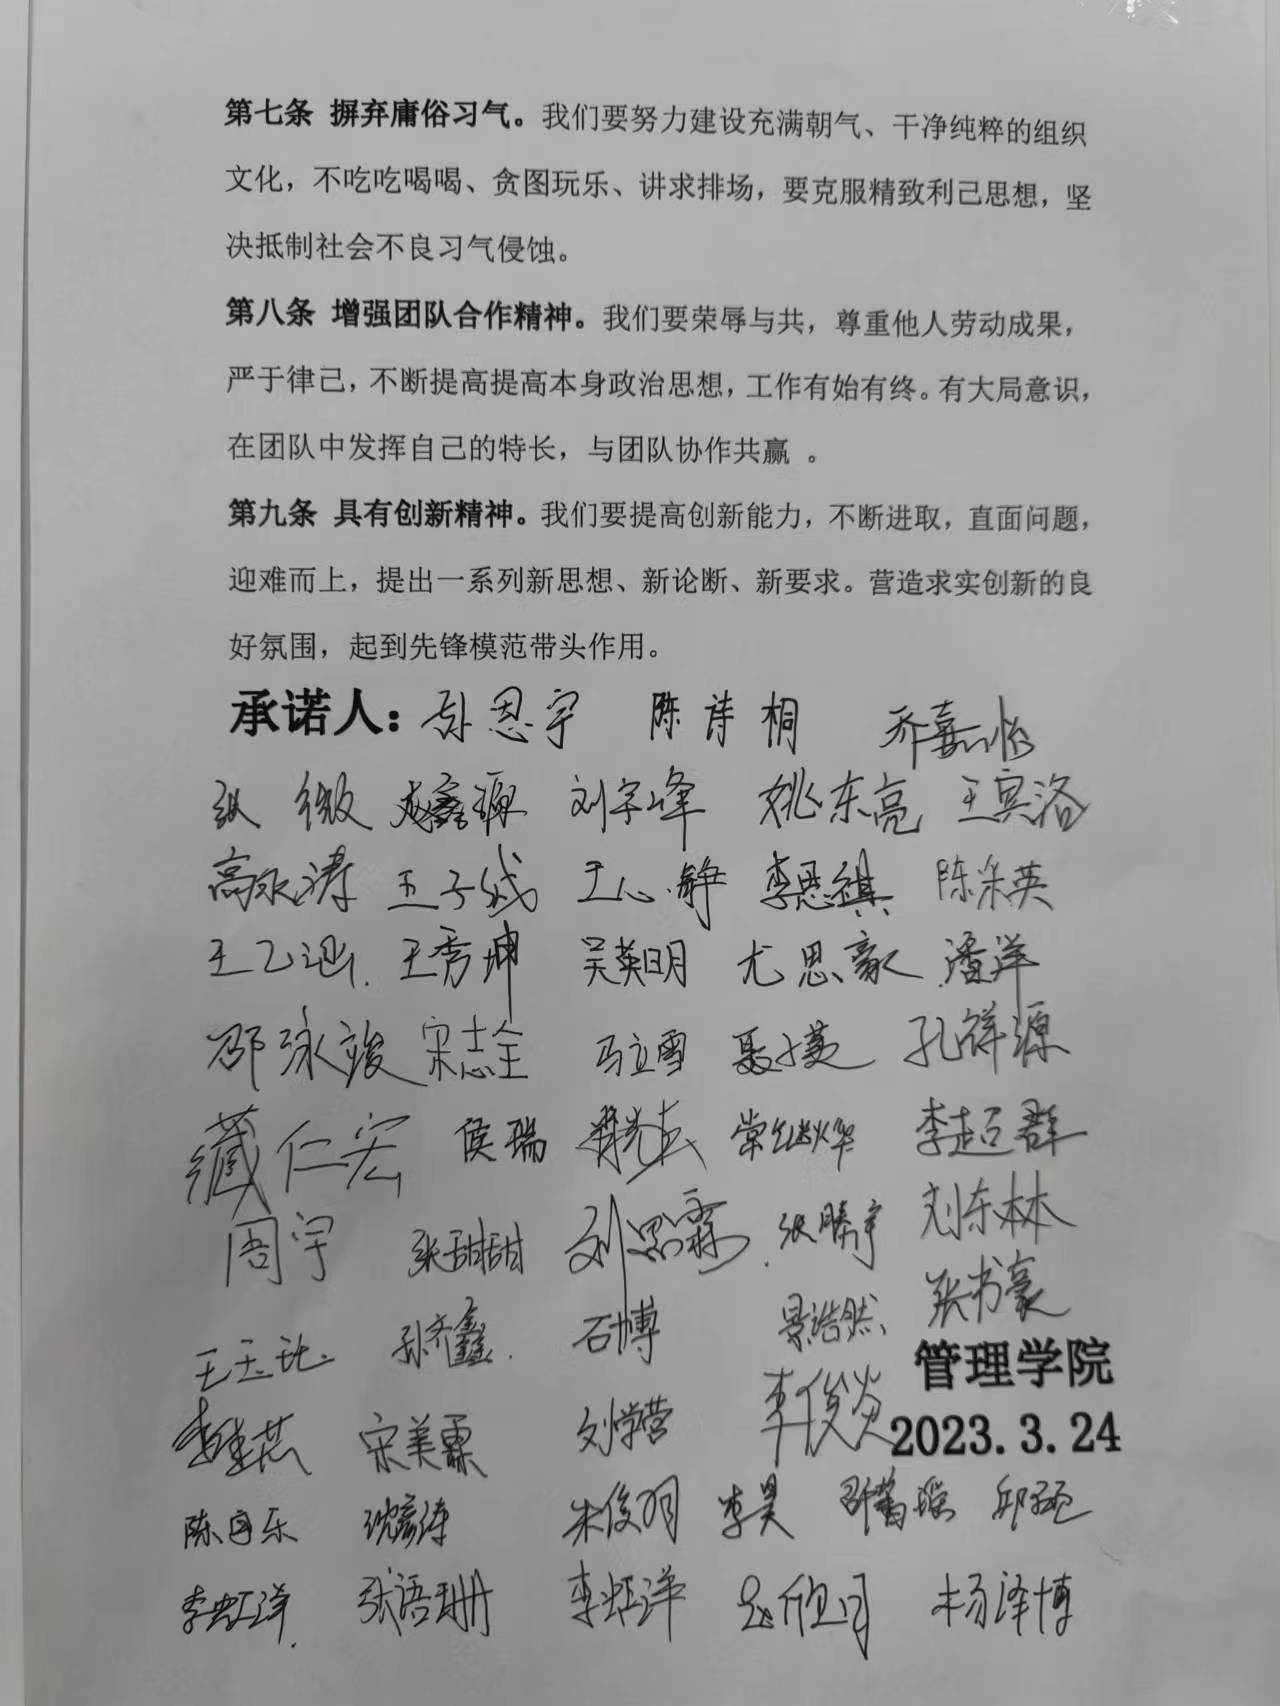 第七条 摒弃庸俗习气。我们要努力建设充满朝气、干净纯粹的组织
文化，不吃吃喝喝、贪图玩乐、讲求排场，要克服精致利己思想，坚
决抵制社会不良习气侵蚀。
第八条 增强团队合作精神。我们要荣辱与共，尊重他人劳动成果，
严于律己，不断提高提高本身政治思想，工作有始有终。有大局意识，
在团队中发挥自己的特长，与团队协作共赢 。
第九条 具有创新精神。我们要提高创新能力，不断进取，直面问题，
迎难而上，提出一系列新思想、新论断、新要求。营造求实创新的良
好氛围，起到先锋模范带头作用。
承诺人：孙恩宇 陈诗桐 乔嘉怡
刘宇峰 姚东亮 王宾洛
高永涛 王心静 李恩祺 陈采英
王秀坤 吴英明 尤思豪 潘洋
邵泳竣 宋志全 马立雪 孔祥源
臧仁宏 侯瑞 常继烨 李超群
周宇 张甜甜 刘思霖 张腾宇 刘东林
孙齐鑫 石博 景浩然 张书豪
管理学院
宋美霖 刘学营 李俊炎
2023.3.24
沈彦涛 朱俊羽 李昊
李虹洋 张语珊 李虹洋 杨泽博